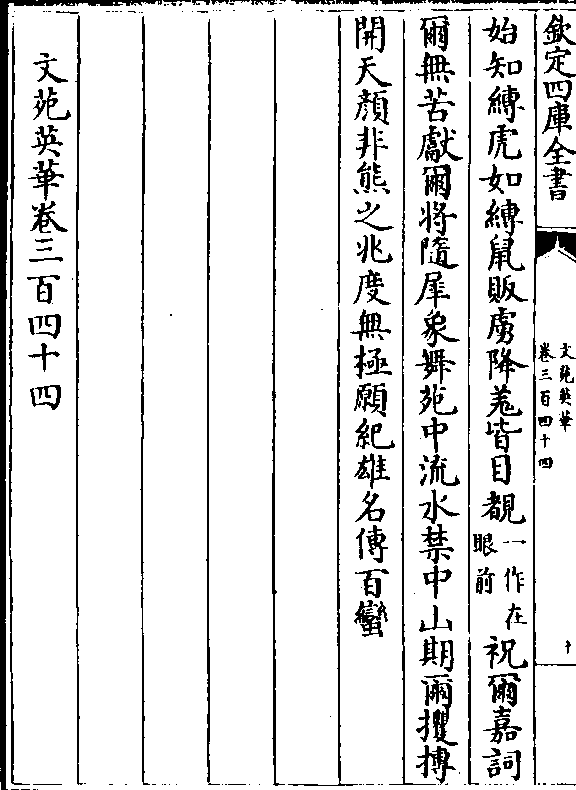 欽定四庫全書
文苑英華
卷三百四十四
始知縛虎如縛䑕販虜降羗皆目覩一作在眼前祝爾嘉詞
爾無苦獻爾將隨犀象舞苑中流水禁中山期爾攫搏
開天顔非熊之兆度無極願紀雄名傳百蠻
文苑英華卷三百四十四